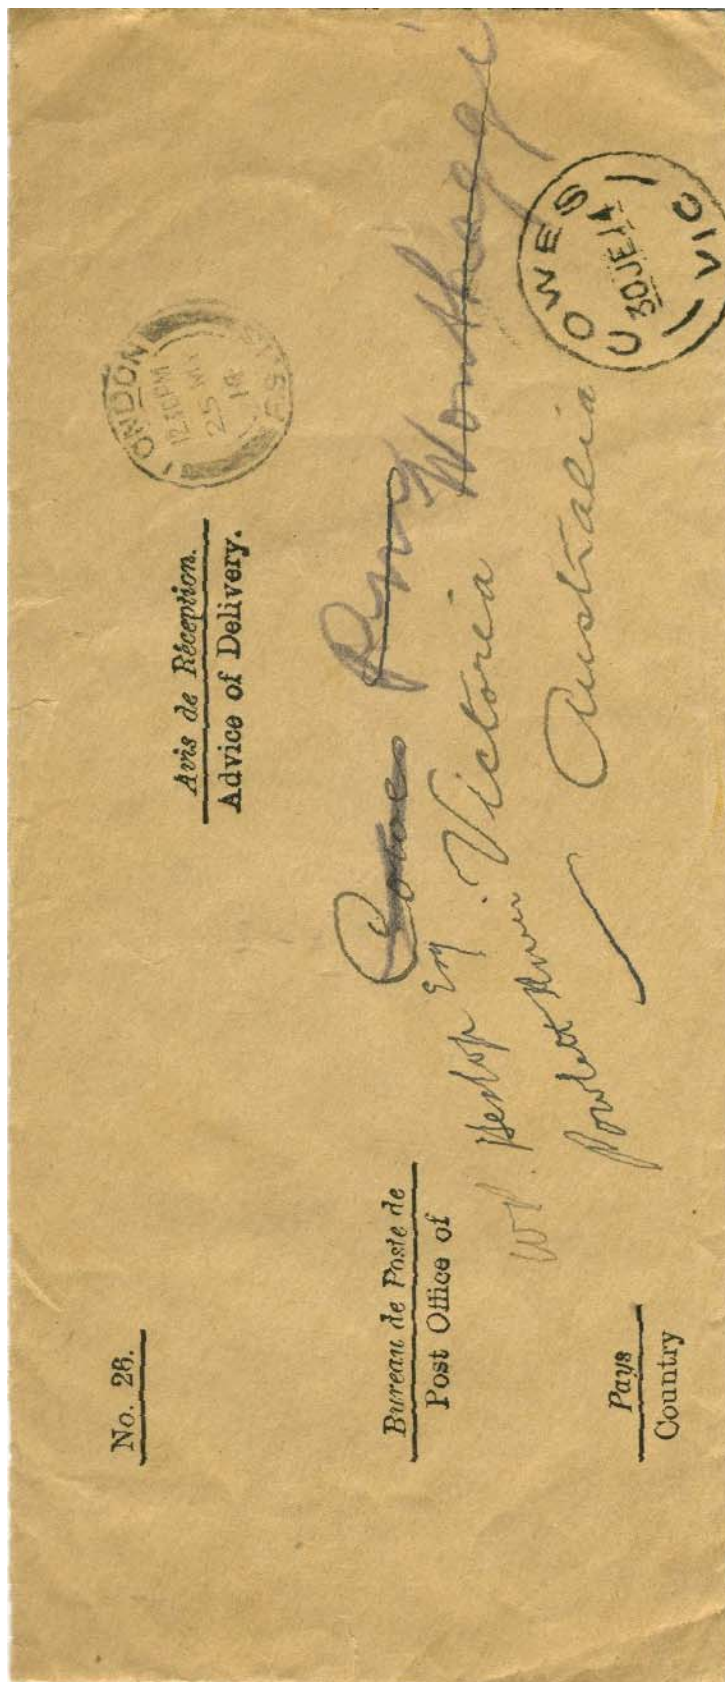 No. 26.
Avis de Réception.
Advice of Delivery.
LONDON
12.30 PM
25 MY
14
F.S.
Bureau de Poste de
Post Office of
Cowes
Wonthaggi
W P. Heslop Esq
Victoria
Powlett River
Pays
Country
Australia
COWES
30 JE 14
VIC